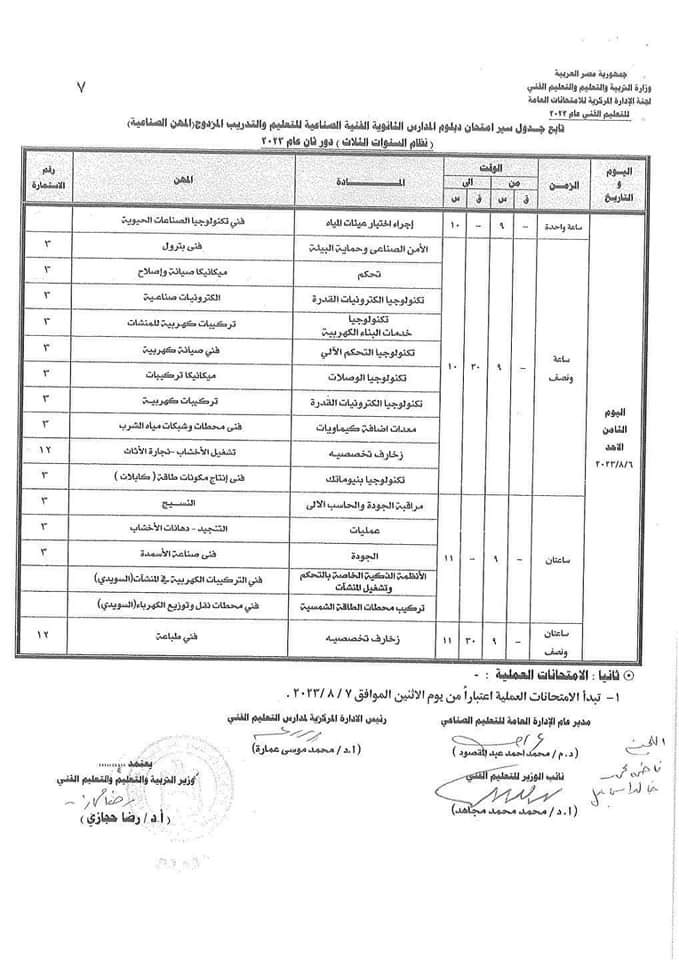 ٧
جمهورية مصر العربية
وزارة التربية والتعليم والتعليم الفني
لجنة الإدارة المركزية للامتحانات العامة
للتعليم الفني عام ٢٠٢٣
تابع جدول سير امتحان دبلوم المدارس الثانوية الفنية الصناعية للتعليم والتدريب المزدوج(المهن الصناعية)
(نظام السنوات الثلاث) دور ثان عام ٢٠٢٣
اليوم و التاريخ | الزمن | الوقت | المادة | المهن | رقم الاستمارة
من | الى
ق | س | ق | س
ساعة واحدة | - | ٩ | - | ١٠ | إجراء اختبار عينات المياه | فني تكنولوجيا الصناعات الحيوية
الأمن الصناعى وحماية البيئة | فنى بترول | ٣
تحكم | ميكانيكا صيانة وإصلاح | ٣
تكنولوجيا الكترونيات القدرة | الكترونيات صناعية | ٣
تكنولوجيا خدمات البناء الكهربية | تركيبات كهربية للمنشات | ٣
تكنولوجيا التحكم الآلي | فني صيانة كهربية | ٣
ساعة ونصف | - | ٩ | ٣٠ | ١٠
تكنولوجيا الوصلات | ميكانيكا تركيبات | ٣
تكنولوجيا الكترونيات القدرة | تركيبات كهربية | ٣
اليوم الثامن الاحد ٢٠٢٣/٨/٦
معدات اضافة كيماويات | فنى محطات وشبكات مياه الشرب | ٣
زخارف تخصصيه | تشغيل الأخشاب -نجارة الأثاث | ١٢
تكنولوجيا بنيوماتك | فنى إنتاج مكونات طاقة (كابلات) | ٣
مراقبة الجودة والحاسب الالى | النسيج | ٣
عمليات | التنجيد - دهانات الأخشاب | ٣
ساعتان | - | ٩ | - | ١١ | الجودة | فنى صناعة الأسمدة | ٣
الأنظمة الذكية الخاصة بالتحكم وتشغيل المنشآت | فني التركيبات الكهربية في المنشآت(السويدي)
تركيب محطات الطاقة الشمسية | فني محطات نقل وتوزيع الكهرباء(السويدي)
ساعتان ونصف | - | ٩ | ٣٠ | ١١ | زخارف تخصصيه | فني طباعة | ١٢
ثانيا : الامتحانات العملية : -
١- تبدأ الامتحانات العملية اعتباراً من يوم الاثنين الموافق ٧ / ٨ / ٢٠٢٣ .
مدير عام الإدارة العامة للتعليم الصناعي
(د.م/ محمد احمد عبد المقصود)
رئيس الادارة المركزية لمدارس التعليم الفني
(ا.د/ محمد موسى عمارة)
نائب الوزير للتعليم الفني
(ا.د/ محمد محمد مجاهد)
يعتمد ..........
وزير التربية والتعليم والتعليم الفني
(أ.د/ رضا حجازي)